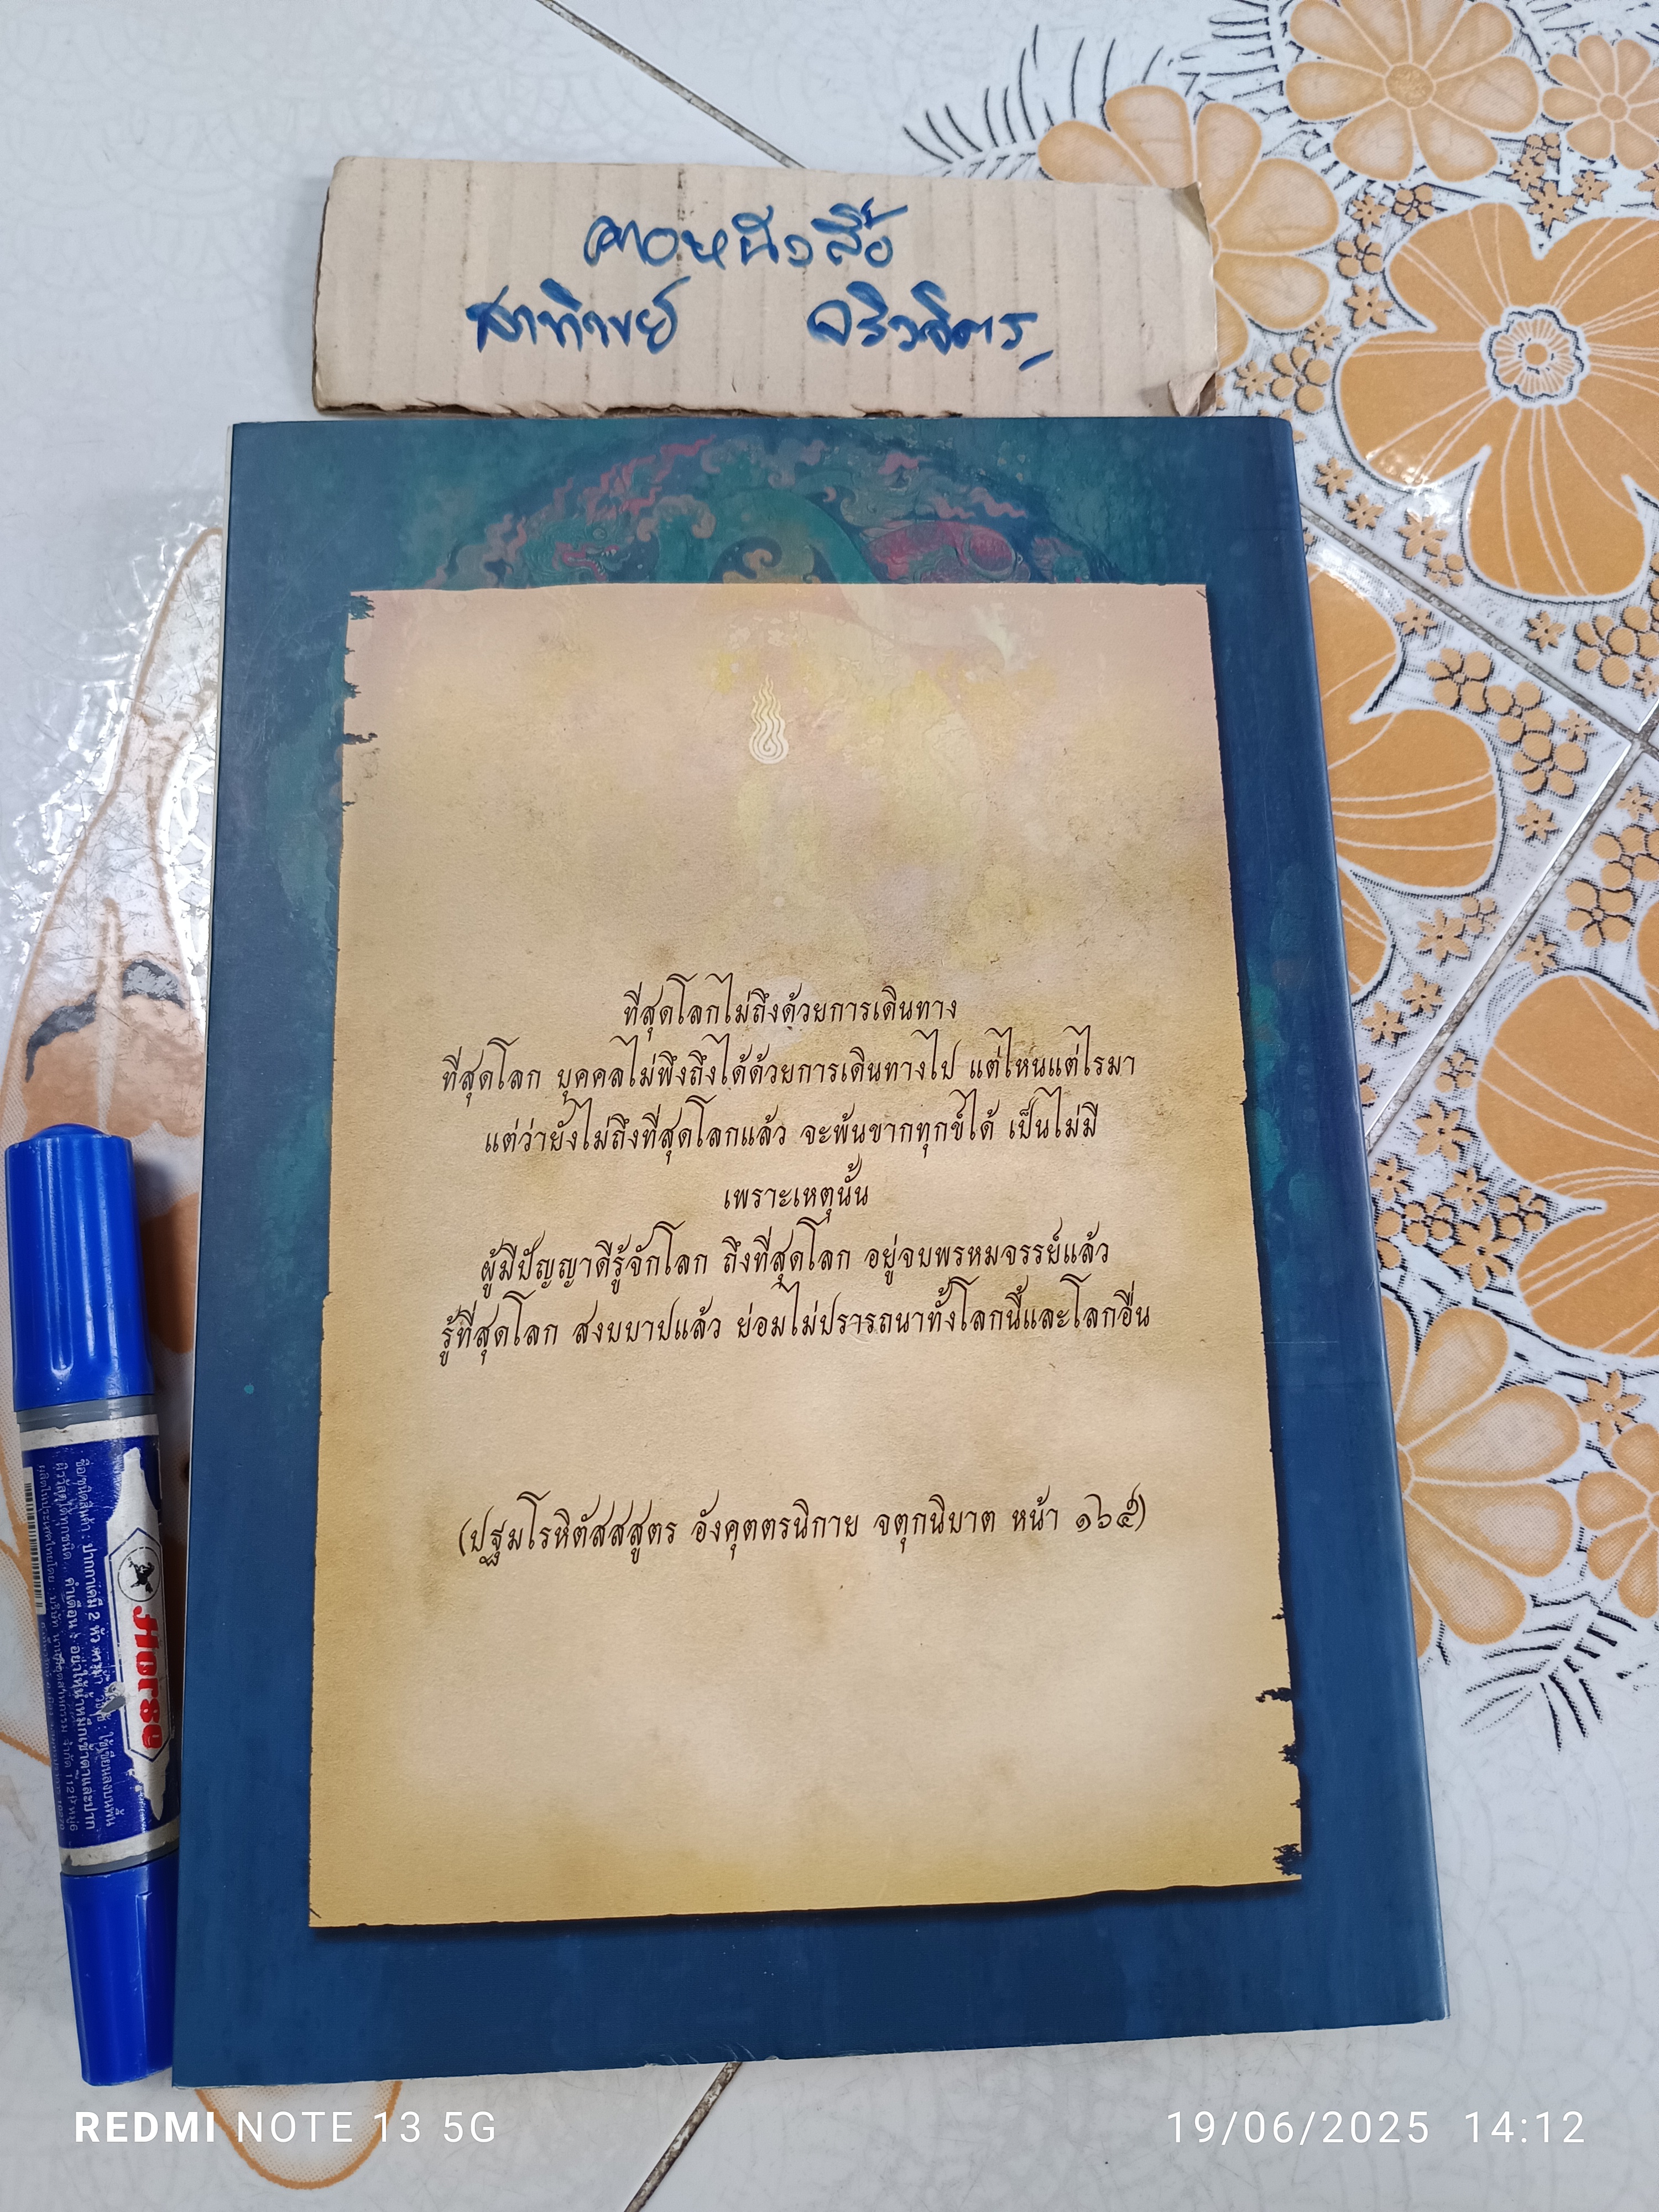 คอหนังสือ
สาทิพย์
ที่สุดโลกไม่ถึงด้วยการเดินทาง
ที่สุดโลก บุคคลไม่พึงถึงได้ด้วยการเดินทางไป แต่ไหนแต่ไรมา
แต่ว่ายังไม่ถึงที่สุดโลกแล้ว จะพ้นขากทุกข์ได้ เป็นไม่มี
เพราะเหตุนั้น
ผู้มีปัญญาดีรู้จักโลก ถึงที่สุดโลก อยู่จบพรหมจรรย์แล้ว
รู้ที่สุดโลก สงบบาปแล้ว ย่อมไม่ปรารถนาทั้งโลกนี้และโลกอื่น
(ปฐมโรหิตัสสสูตร อังคุตตรนิกาย จตุกนิบาต หน้า ๑๖๕)
Horse
REDMI NOTE 13 5G
19/06/2025 14:12